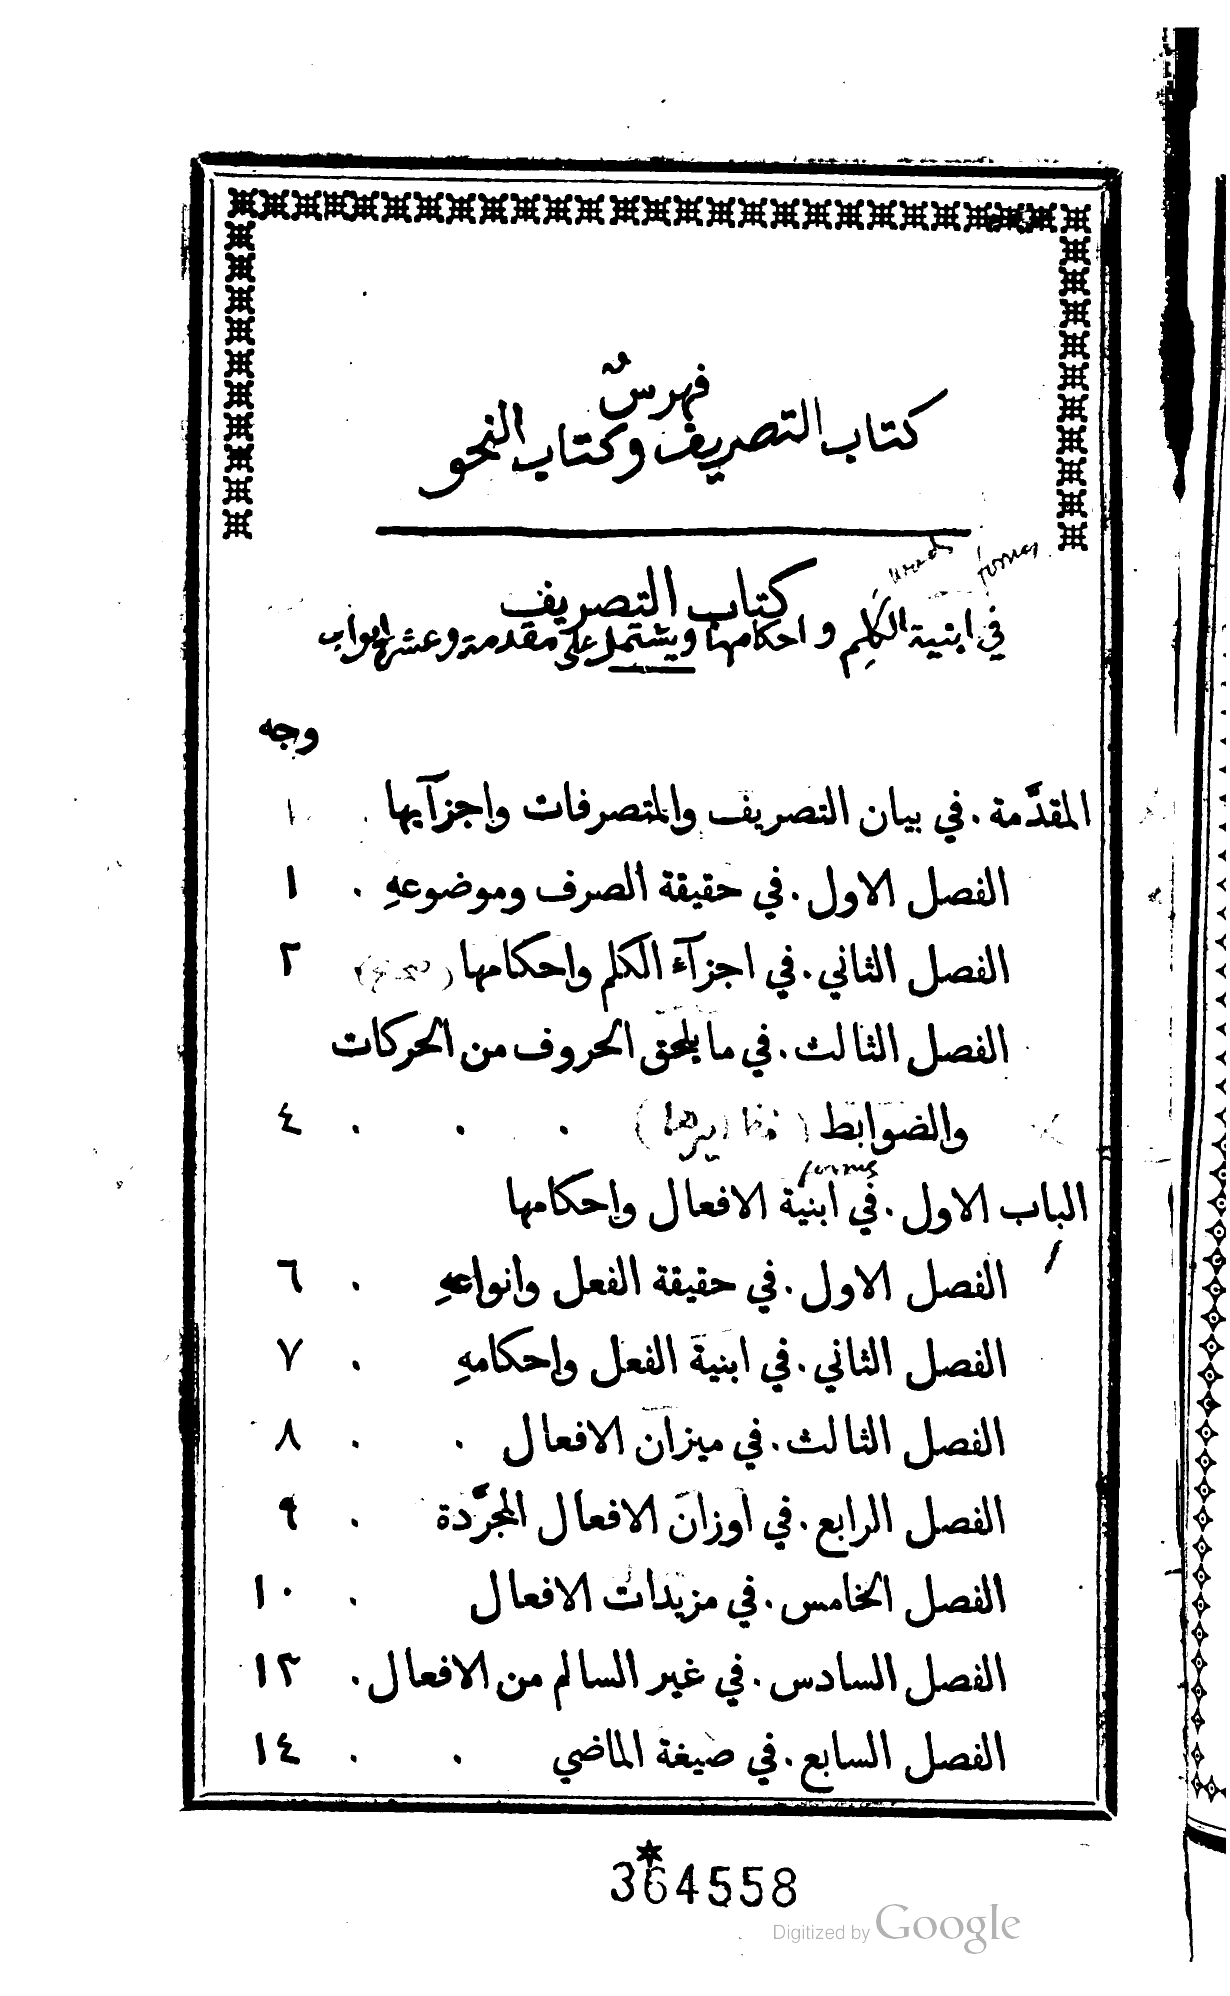 فهرسٌ
كتاب التصريف وكتاب النحو
words forms
كتاب التصريف
في ابنية الكَلِم واحكامها ويشتمل على مقدمة وعشرة ابواب
وجه
المقدَّمة . في بيان التصريف والمتصرفات واجزآيها . ١
الفصل الاول . في حقيقة الصرف وموضوعهِ . ١
الفصل الثاني . في اجزآء الكلم واحكامها ٢
الفصل الثالث . في ما يلحق الحروف من الحركات
والضوابط . . . ٤
forms
الباب الاول . في ابنية الافعال واحكامها
الفصل الاول . في حقيقة الفعل وانواعهِ . ٦
الفصل الثاني . في ابنية الفعل واحكامهِ . ٧
الفصل الثالث . في ميزان الافعال . . ٨
الفصل الرابع . في اوزان الافعال المجرَّدة . ٩
الفصل الخامس . في مزيدات الافعال . ١٠
الفصل السادس . في غير السالم من الافعال . ١٣
الفصل السابع . في صيغة الماضي . . ١٤
364558
Digitized by Google